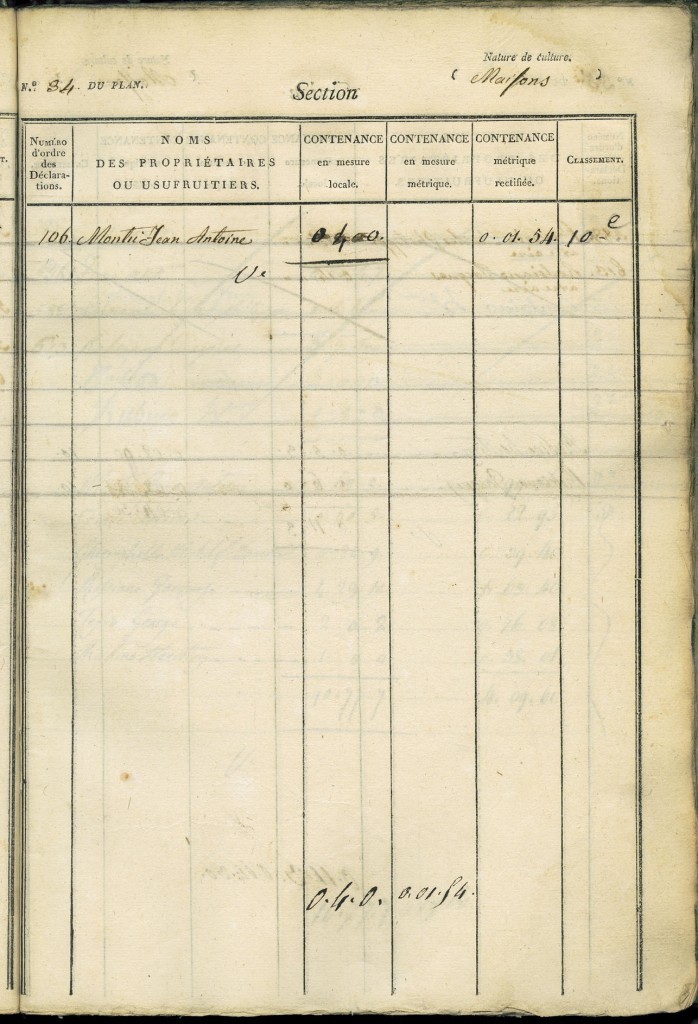 Nature de culture.
N.º 34. DU PLAN. Section ( Maisons )
NUMÉRO d'ordre des Déclara-tions. NOMS DES PROPRIÉTAIRES OU USUFRUITIERS. CONTENANCE en mesure locale. CONTENANCE en mesure métrique. CONTENANCE métrique rectifiée. CLASSEMENT.
106. Jean Antoine 0 4 0. 0. 01. 54. 10e
Ve
0. 4. 0. 0. 01. 54.